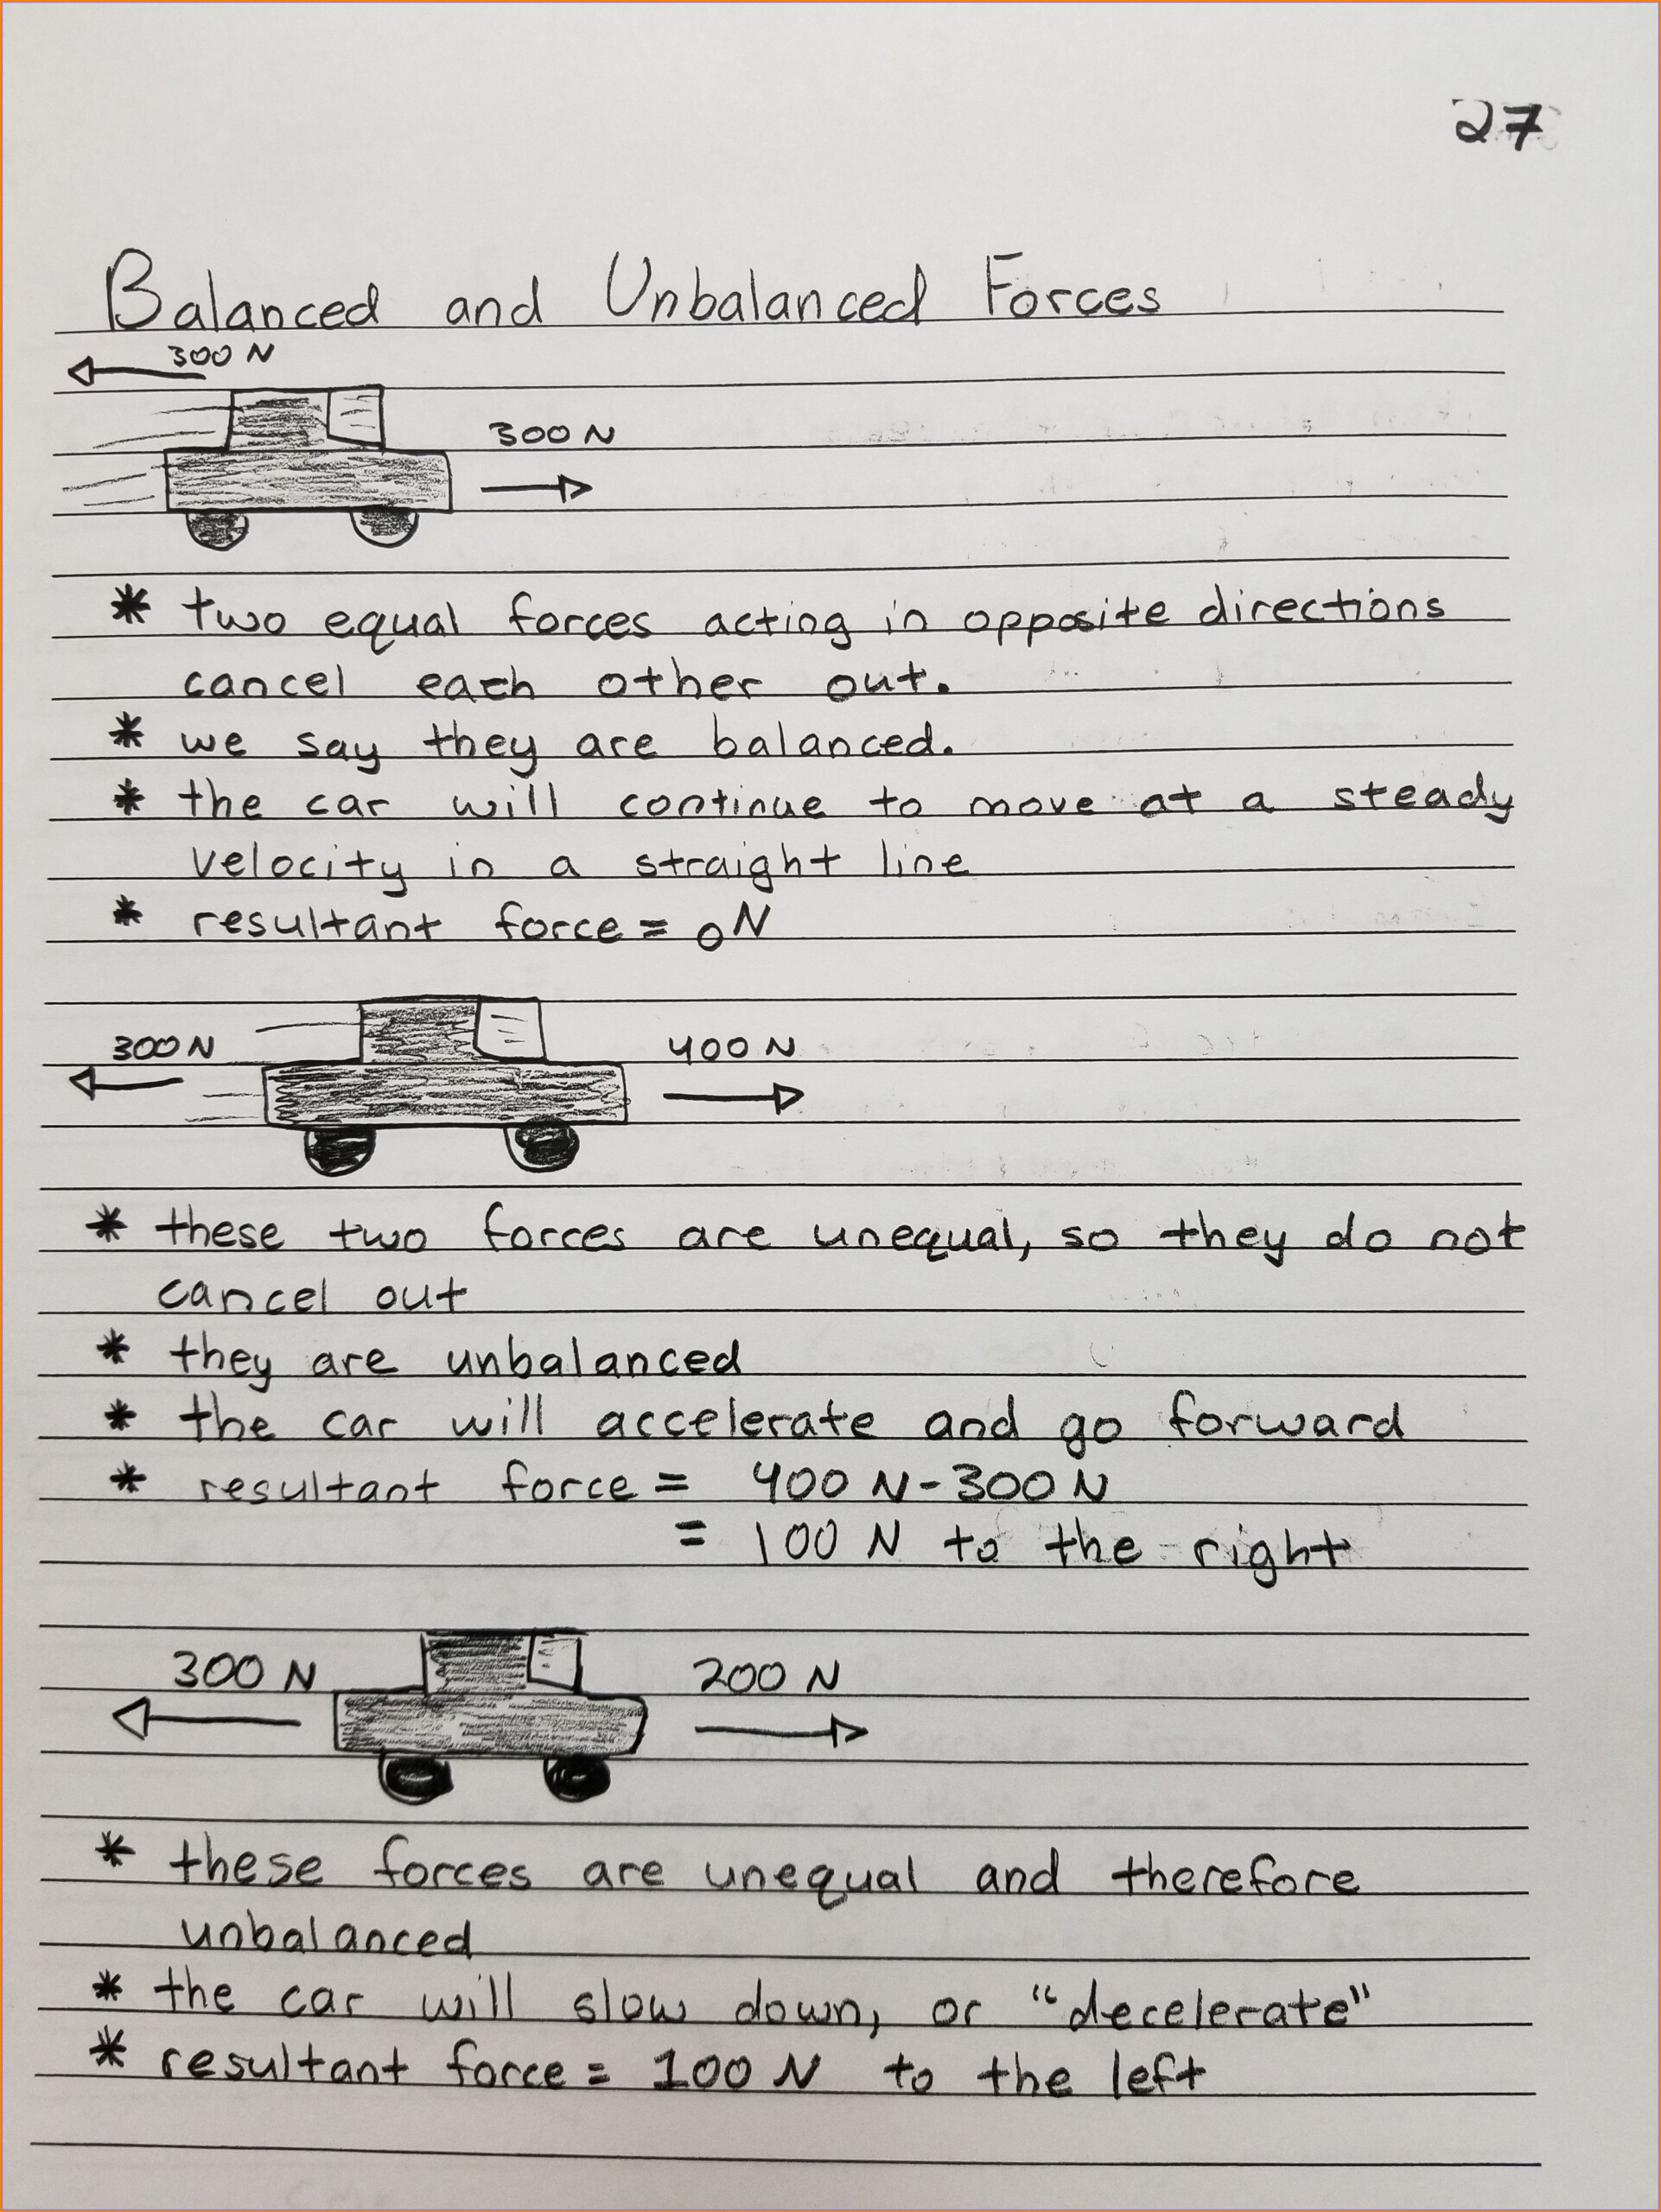 27
Balanced and Unbalanced Forces
300 N
300 N
* two equal forces acting in opposite directions
cancel each other out.
* we say they are balanced.
* the car will continue to move at a steady
velocity in a straight line
* resultant force = 0N
300 N
400 N
* these two forces are unequal, so they do not
cancel out
* they are unbalanced
* the car will accelerate and go forward
* resultant force = 400 N - 300 N
= 100 N to the right
300 N
200 N
* these forces are unequal and therefore
unbalanced
* the car will slow down, or "decelerate"
* resultant force = 100 N to the left